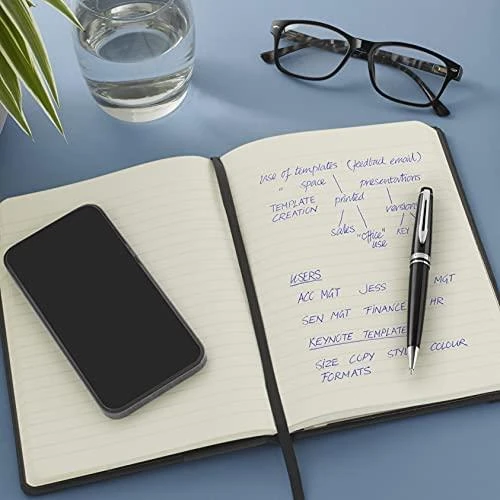 use of templates (feedback email)
" space presentations
TEMPLATE CREATION printed versions
sales "office" use KEY
USERS
ACC MGT JESS MGT
SEN MGT FINANCE HR
KEYNOTE TEMPLATE
SIZE COPY STYLE COLOUR
FORMATS